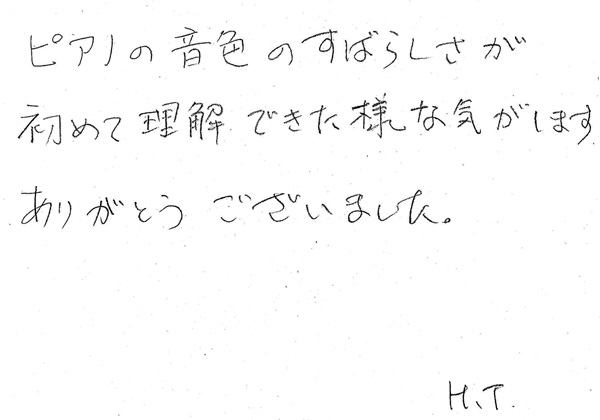 ピアノの音色のすばらしさが
初めて理解できた様な気がします
ありがとうございました。
H.T.